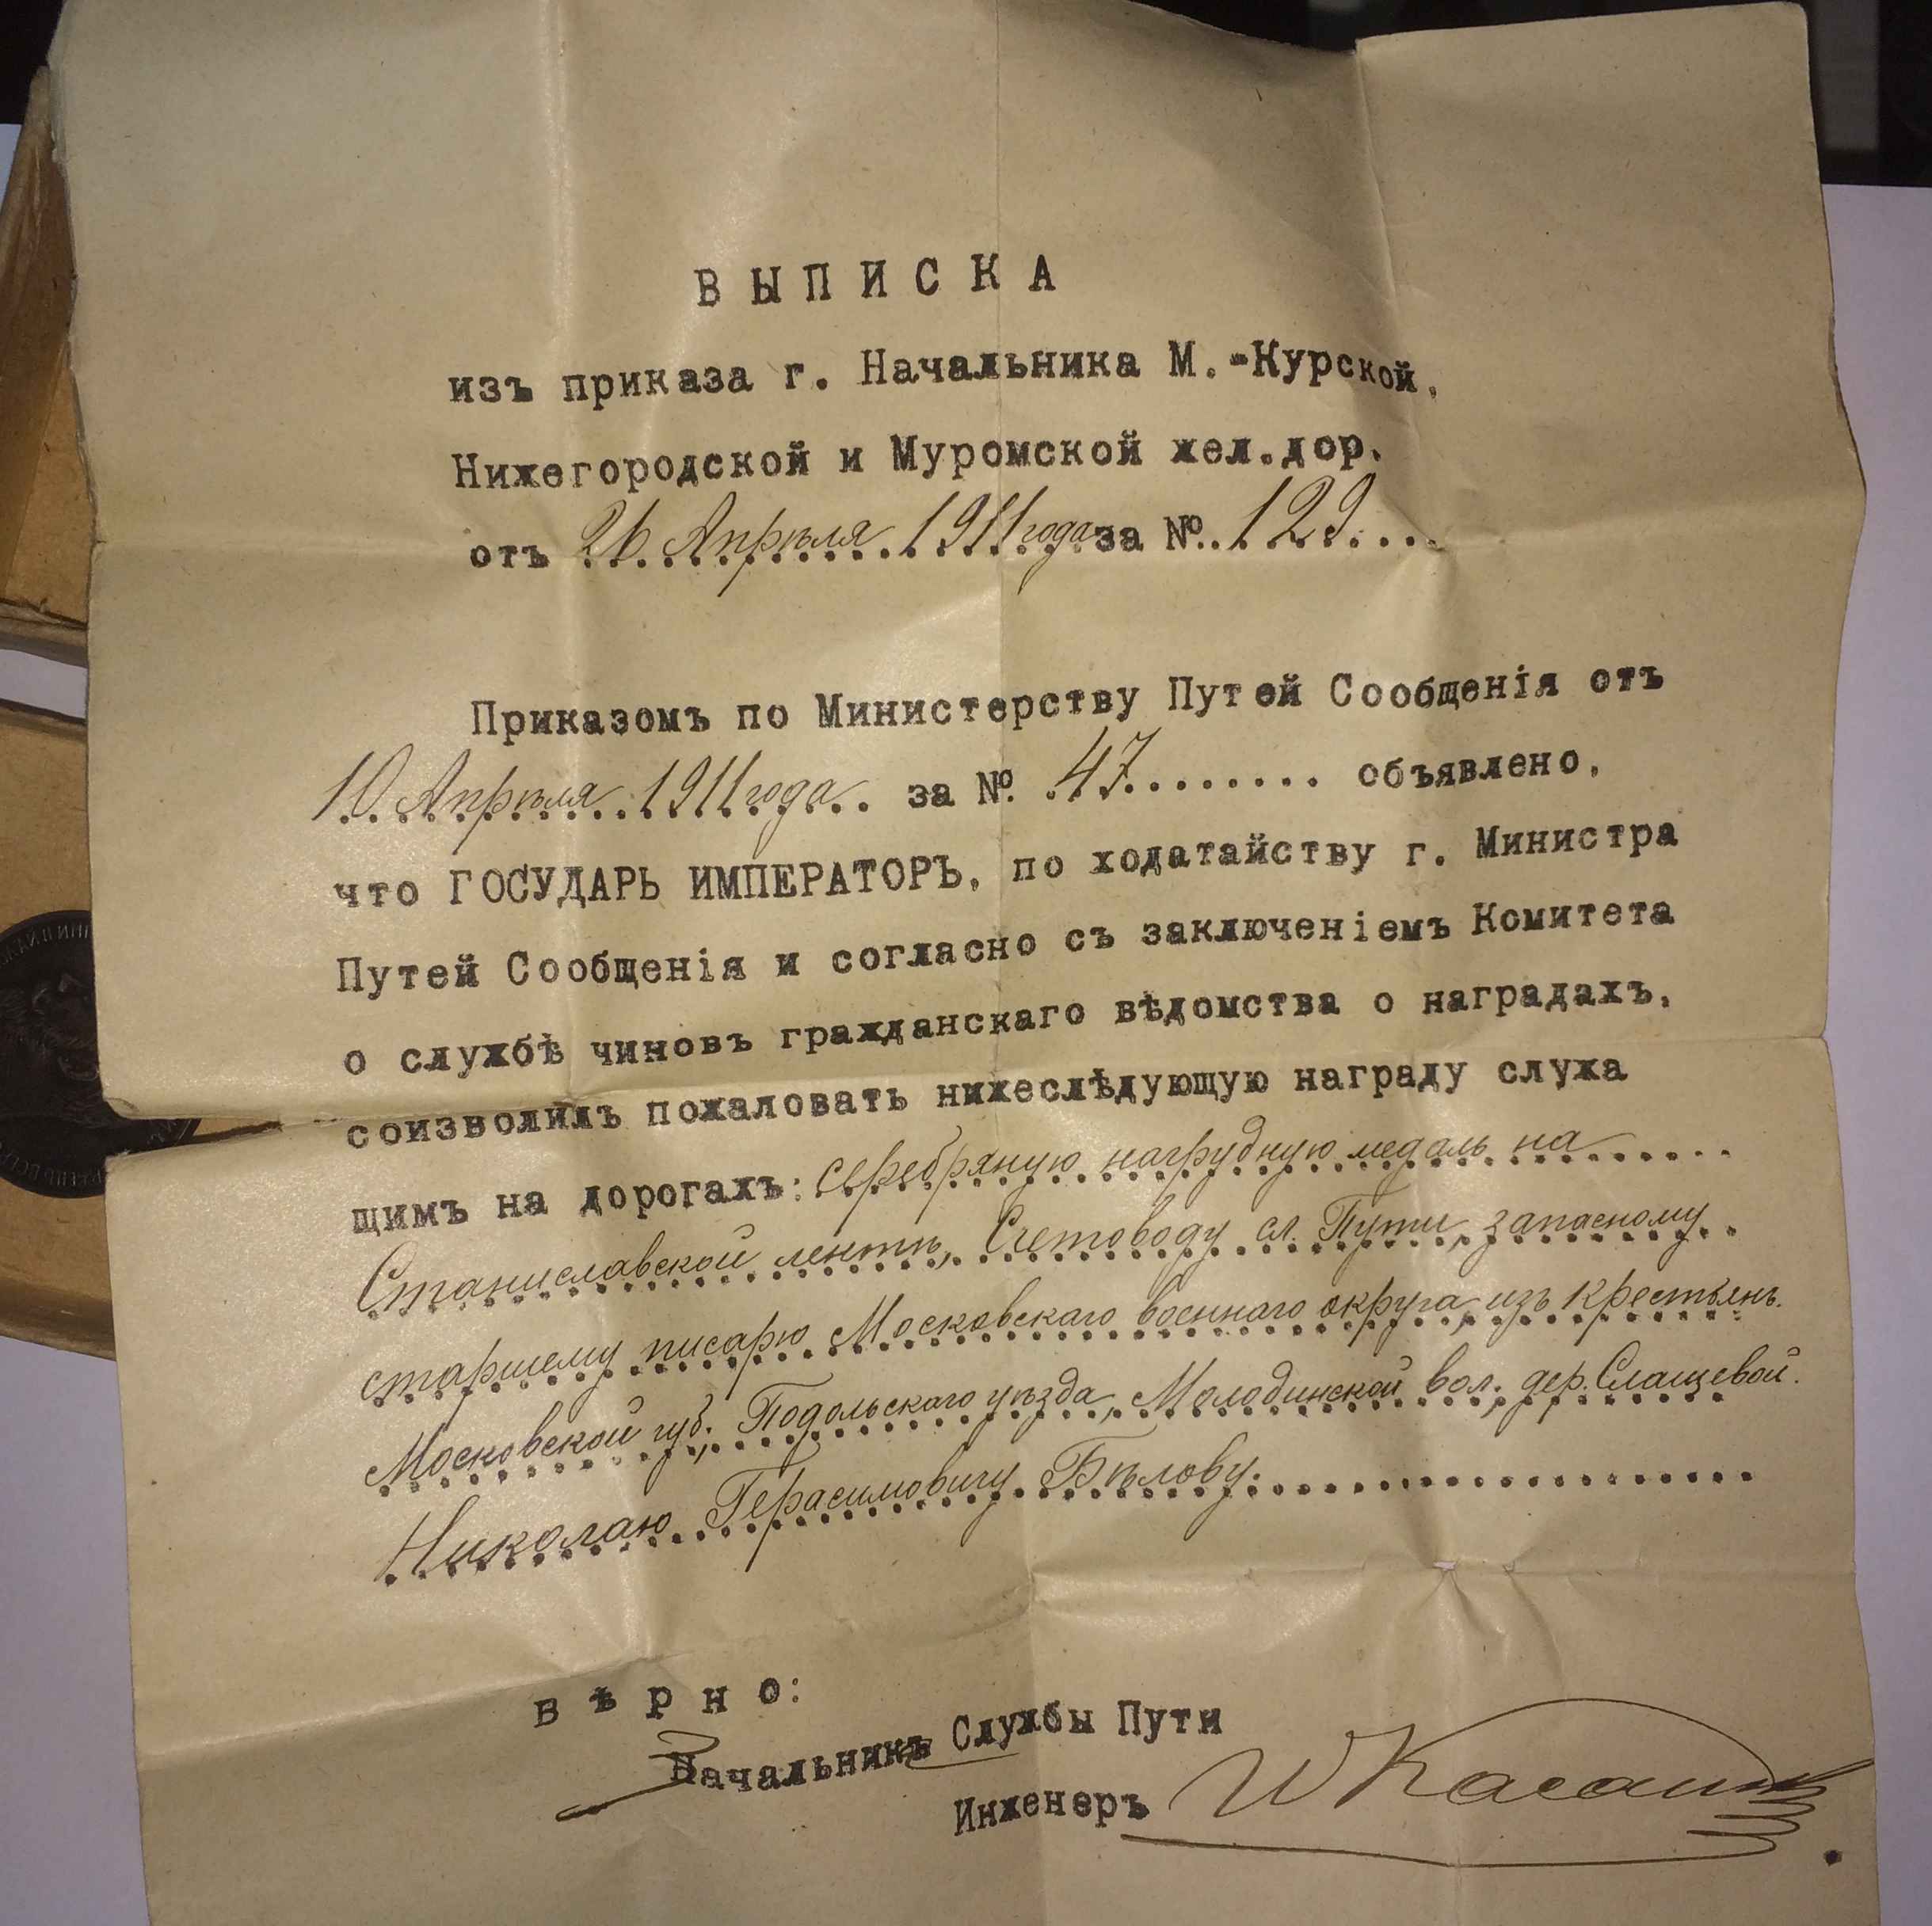 ВЫПИСКА
изъ приказа г. Начальника М.-Курской,
Нижегородской и Муромской жел.дор.
отъ 26 Апрѣля 1911 года за №. 129....
Приказомъ по Министерству Путей Сообщенія отъ
10 Апрѣля 1911 года.. за №. 47........ объявлено,
что ГОСУДАРЬ ИМПЕРАТОРЪ, по ходатайству г. Министра
Путей Сообщенія и согласно съ заключеніемъ Комитета
о службѣ чиновъ гражданскаго вѣдомства о наградахъ,
соизволилъ пожаловать нижеслѣдующую награду служа
щимъ на дорогахъ: серебряную нагрудную медаль на......
Станиславской лентѣ, Счетоводу сл. Пути, запасному..
старшему писарю Московскаго военнаго округа, изъ крестьянъ.
Московской губ., Подольскаго уѣзда, Молодинской вол., дер. Слащевой.
Николаю Герасимовичу Бѣлову.....................
вѣрно:
Начальникъ Службы Пути
Инженеръ